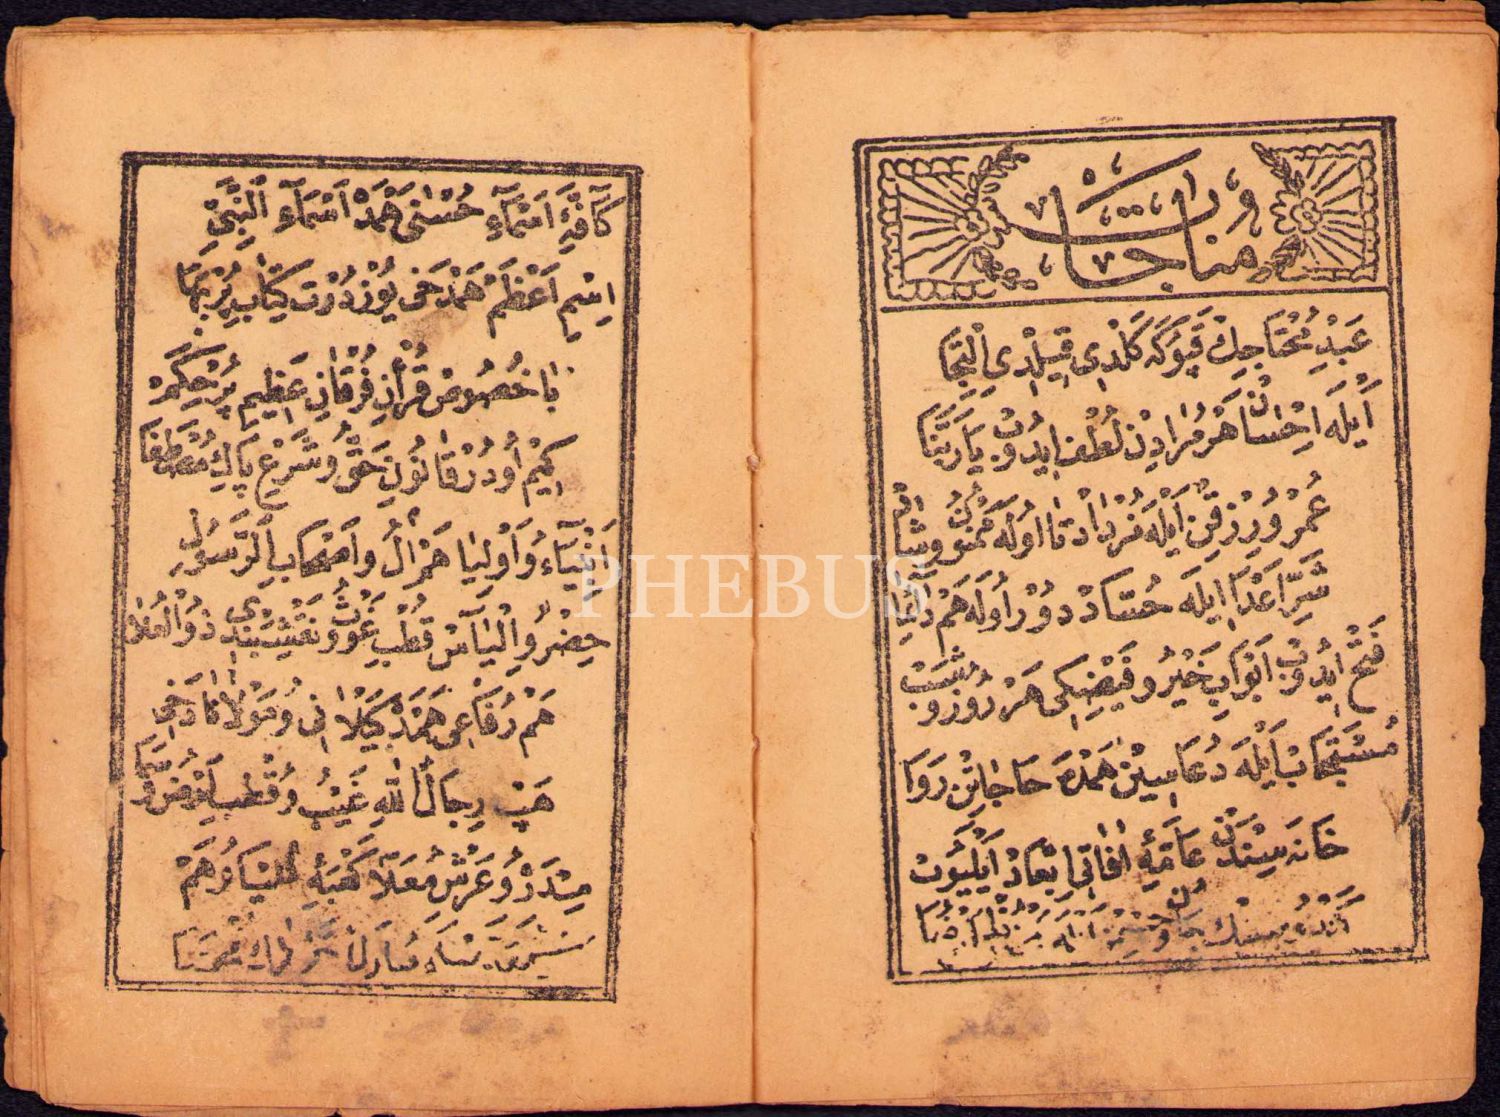 مناجات
عَبْدِ مُحْتَاجِكْ قَپُوكَه كَلْدِى قِيلْدِى اِلْتِجَا
اَيْلَه اِحْسَانْ هَرْ مُرَادِنْ لُطْف ايدُوبْ يَا رَبَّنَا
عُمْرُ و رِزْقِنْ اَيْلَه مُزْدَادْ تَا اُولَه مَمْنُونْ و شَادْ
شَرِّ اَعْدَا ايلَه حُسَّادْ دُورْ اُولَه هَمْ دَائِمَا
فَتْحْ ايدُوبْ اَبْوَابِ خَيْرُ و فَيْضِكِى هَرْ رُوزُ و شَبْ
مُسْتَجَابْ اَيْلَه دُعَاسِينْ هَمْدَه حَاجَاتِنْ رَوَا
خَانَه سِينْدَنْ عَامَّهِٔ اٰفَاتِى اِبْعَادْ اَيْلَيُوبْ
كَآفَّهِٔ اَسْمَآءِ حُسْنٰى هَمْدَه اَسْمَآءِ النَّبِيِّ
اِسْمِ اَعْظَمْ هَمْ دَخِى يُوزْ دُرْتْ كِتَابِ پُرْ بَهَا
بَا خُصُوصْ قُرْاٰنِ فُرْقَانِ عَظِيمِ پُرْ حِكَمْ
كِيمْ اُودُرْ قَانُونِ حَقُّ و شَرْعِ پَاكِ مُصْطَفَا
اَنْبِيَآءُ و اَوْلِيَا هَمْ اٰلُ و اَصْحَابِ الرَّسُولِ
حِضْرُ و اِلْيَاسْ قُطْبِ غَوْثُ و نَقْشِبَنْدِى ذُو الْعُلَا
هَمْ رُفَاعِى هَمْدَه كَيْلَانِى و مَوْلَانَا دَخِى
هَپْ رِجَالُ اللهِ غَيْبُ و قُطْبِ
مِنْدَرْ و عَرْشِ مُعَلَّا كَعْبَهِٔ عُلْيَا و هَمْ
PHEBUS